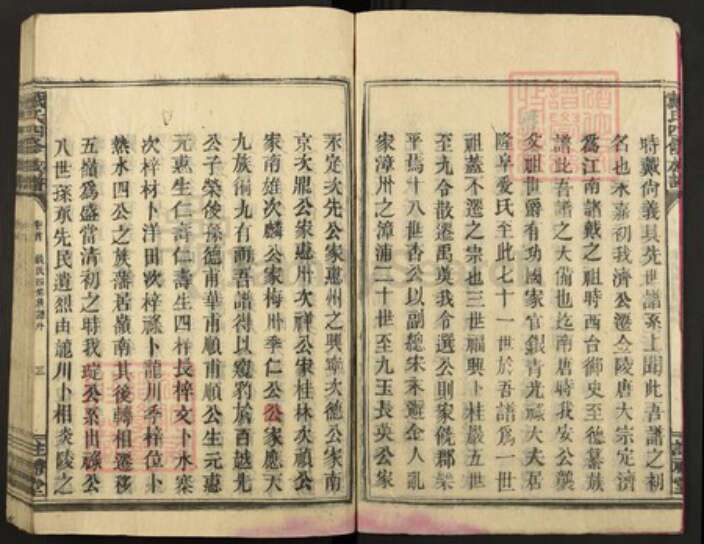 時戴尙義具先世譜系上聞此吾譜之初
名也永嘉初我濟公遷金陵唐大宗定濟
爲江南諸戴之祖時西台御史至德纂族
譜此吾譜之大備也迄南唐時我安公襲
父祖世爵有功國家官銀青光祿大夫居
隆阜愛氏至此七十一世於吾譜爲一世
祖蓋不遷之宗也三世福興卜桂巖五世
至九令散遷禹英我令選公則家饒郡樂
平焉十八世杏公以副總宋末避金人亂
家漳州之漳浦二十世至九玉長英公家
不定次先公家惠州之興寧次德公家南
京次恩公家惠州次祥公家桂林次禎公
家南雄次麟公家梅州季仁公公家應天
九族衕九有而吾譜得以窺豹於百越先
公子榮俊孫德甫華甫順甫順公生元惠
元惠生仁壽仁壽生四梓長梓文卜水寨
次梓材卜洋田次梓祿卜龍川季梓位卜
熱水四公之族蕃居嶺南其後轉相遷移
五嶺爲盛當清初之時我珽公系出祿公
八世孫承先民遺烈由龍川卜相炎陵之
戴氏四修族譜
卷首
三
註禮堂